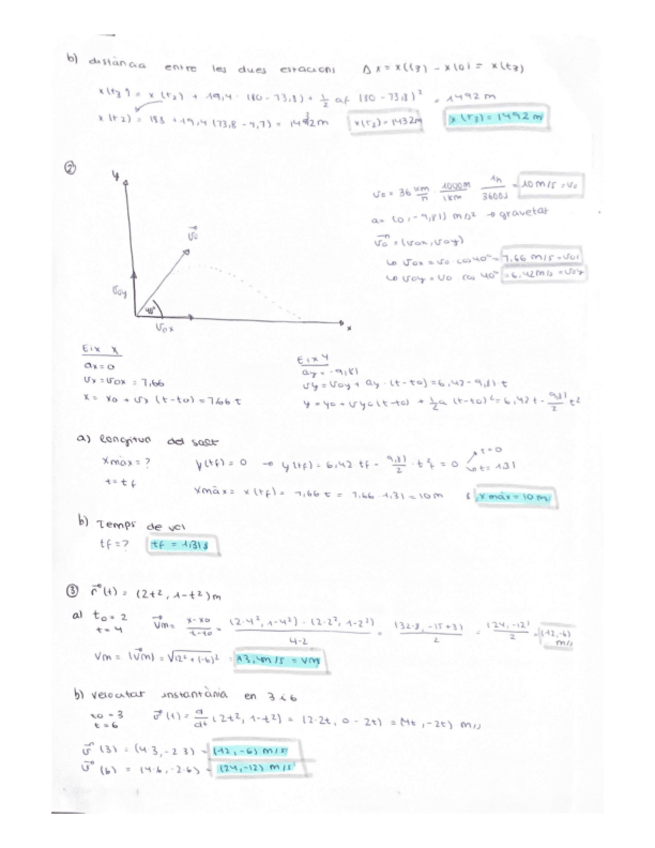 b) distància entre les dues estacions Δx = x(t3) - x(0) = x(t3)
x(t3) = x(t2) + 19,4 · (80 - 73,8) + 1/2 a (80 - 73,8)² = 1492 m
x(t2) = 188 + 19,4 (73,8 - 9,7) = 1432 m x(t2) = 1432m x(t3) = 1492 m
②
y
v0
v0y
40°
v0x
x
v0 = 36 km/h 1000m/1km 1h/3600s = 10 m/s = v0
a = (0, -9,81) m/s² → gravetat
v0 = (v0x, v0y)
↳ v0x = v0 · cos 40° = 7,66 m/s = v0x
↳ v0y = v0 · cos 40° = 6,42 m/s = v0y
Eix X
ax = 0
vx = v0x = 7,66
x = x0 + vx (t-t0) = 7,66 t
Eix Y
ay = -9,81
vy = v0y + ay · (t-t0) = 6,42 - 9,81 t
y = y0 + vy0 (t-t0) + 1/2 a (t-t0)² = 6,42 t - 9,81/2 t²
a) longitud del salt
xmàx = ? y(tf) = 0 → y(tf) = 6,42 tf - 9,81/2 · tf² = 0 t=0 t=1,31
t = tf
xmàx = x(tf) = 7,66 t = 7,66 · 1,31 = 10m xmàx = 10 m
b) Temps de vol
tf = ? tf = 1,31 s
③ r(t) = (2t², 1-t²) m
a) t0 = 2 vm = x-x0/t-t0 = (2·4², 1-4²) - (2·2², 1-2²)/4-2 = (32-8, -15+3)/2 = (24, -12)/2 = (12, -6) m/s
t = 4
vm = |vm| = √12² + (-6)² = 13,4 m/s = vm
b) velocitat instantània en 3 i 6
t0 = 3 v(t) = d/dt (2t², 1-t²) = (2·2t, 0-2t) = (4t, -2t) m/s
t = 6
v(3) = (4·3, -2·3) = (12, -6) m/s
v(6) = (4·6, -2·6) = (24, -12) m/s